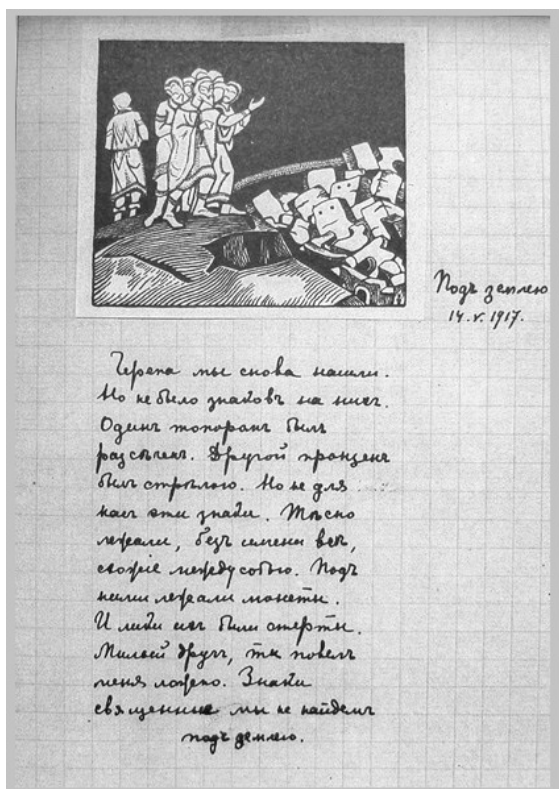 Подъ землею
14.V.1917.
Черепа мы снова нашли.
Но не было знаковъ на нихъ.
Одинъ топоромъ былъ
разсѣченъ. Другой пронзенъ
былъ стрѣлою. Но не для
насъ эти знаки. Тѣсно
лежали, безъ имени всѣ,
схожіе между собою. Подъ
ними лежали монеты.
И лики ихъ были стерты.
Милый другъ, ты повелъ
меня ложно. Знаки
священные мы не найдемъ
подъ землею.